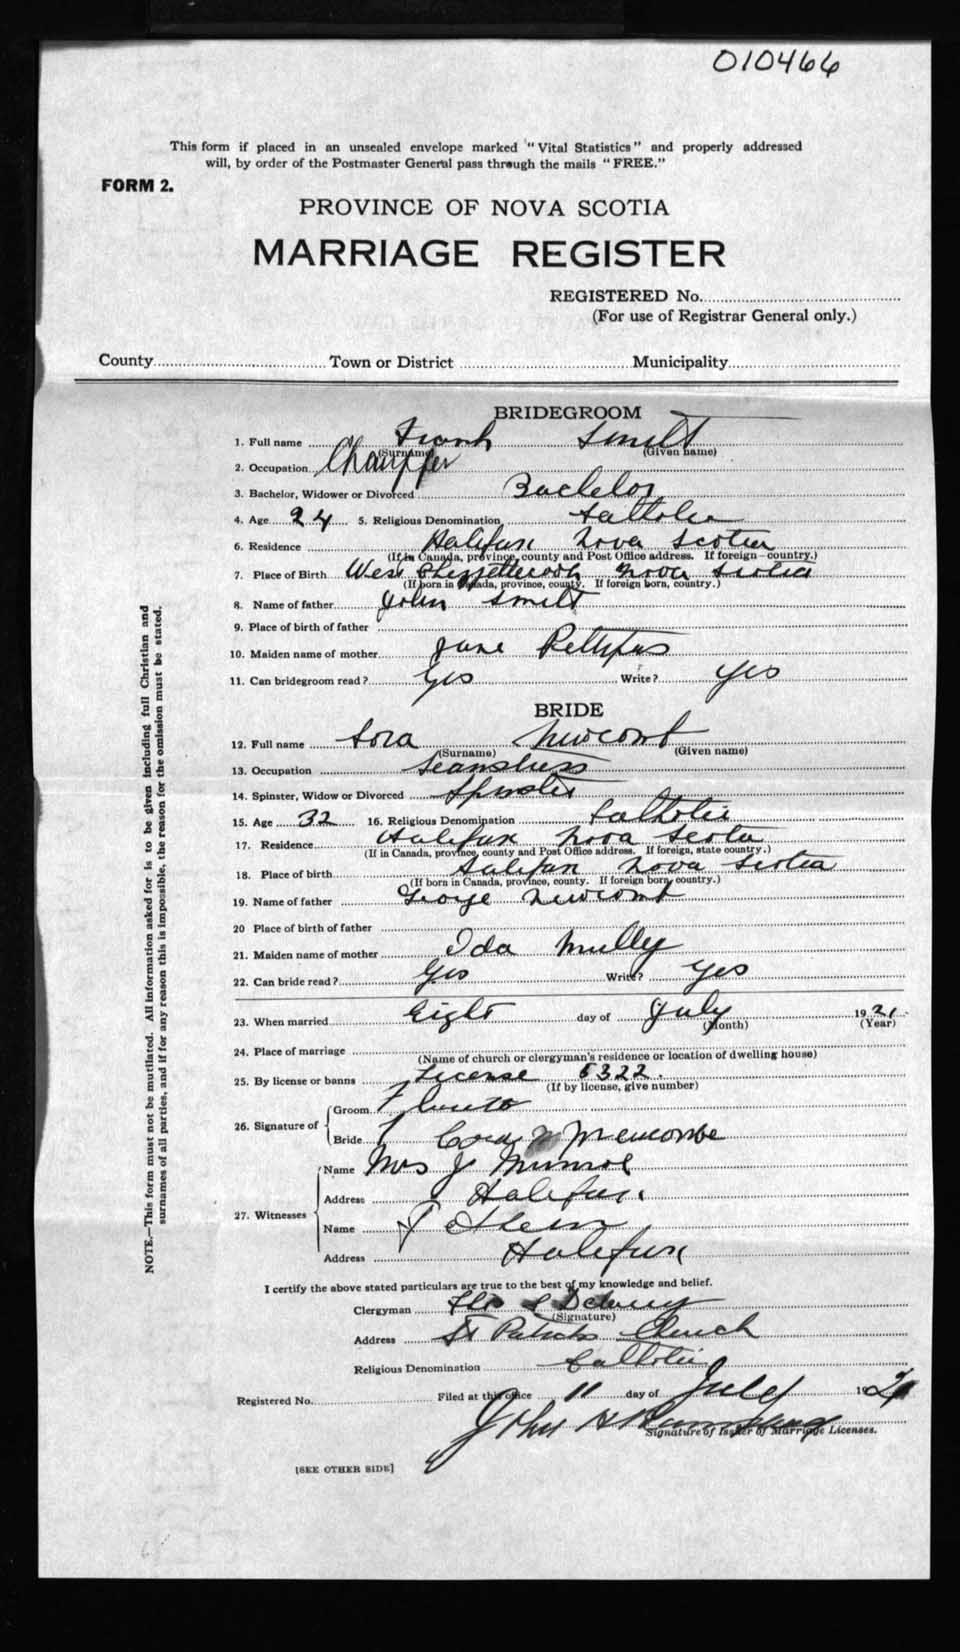 010466
This form if placed in an unsealed envelope marked "Vital Statistics" and properly addressed
will, by order of the Postmaster General pass through the mails "FREE."
FORM 2.
PROVINCE OF NOVA SCOTIA
MARRIAGE REGISTER
REGISTERED No.
(For use of Registrar General only.)
County Town or District Municipality
BRIDEGROOM
1. Full name Frank Smilt
(Surname) (Given name)
2. Occupation
3. Bachelor, Widower or Divorced Bachelor
4. Age 24 5. Religious Denomination Catholic
6. Residence Halifax Nova Scotia
(If in Canada, province, county and Post Office address. If foreign—country.)
7. Place of Birth West Chezzetcook Nova Scotia
(If born in Canada, province, county. If foreign born, country.)
8. Name of father John Smilt
9. Place of birth of father
10. Maiden name of mother Jane Pettipas
11. Can bridegroom read? Yes Write? Yes
BRIDE
12. Full name Newcomb
(Surname) (Given name)
13. Occupation Seamstress
14. Spinster, Widow or Divorced Spinster
15. Age 32 16. Religious Denomination Catholic
17. Residence Halifax Nova Scotia
(If in Canada, province, county and Post Office address. If foreign, state country.)
18. Place of birth Halifax Nova Scotia
(If born in Canada, province, county. If foreign born, country.)
19. Name of father George Newcomb
20 Place of birth of father
21. Maiden name of mother Ida Mully
22. Can bride read? Yes Write? Yes
23. When married Eight day of July 1921
(Month) (Year)
24. Place of marriage
(Name of church or clergyman's residence or location of dwelling house)
25. By license or banns License 6322.
(If by license, give number)
26. Signature of
Groom
Bride
27. Witnesses
Name Mrs J Munroe
Address Halifax
Name
Address Halifax
I certify the above stated particulars are true to the best of my knowledge and belief.
Clergyman
(Signature)
Address St Patricks Church
Religious Denomination Catholic
Registered No. Filed at this office 11 day of July 192
John
Signature of Issuer of Marriage Licenses.
[SEE OTHER SIDE]
NOTE.—This form must not be mutilated. All information asked for is to be given including full Christian and
surnames of all parties, and if for any reason this is impossible, the reason for the omission must be stated.